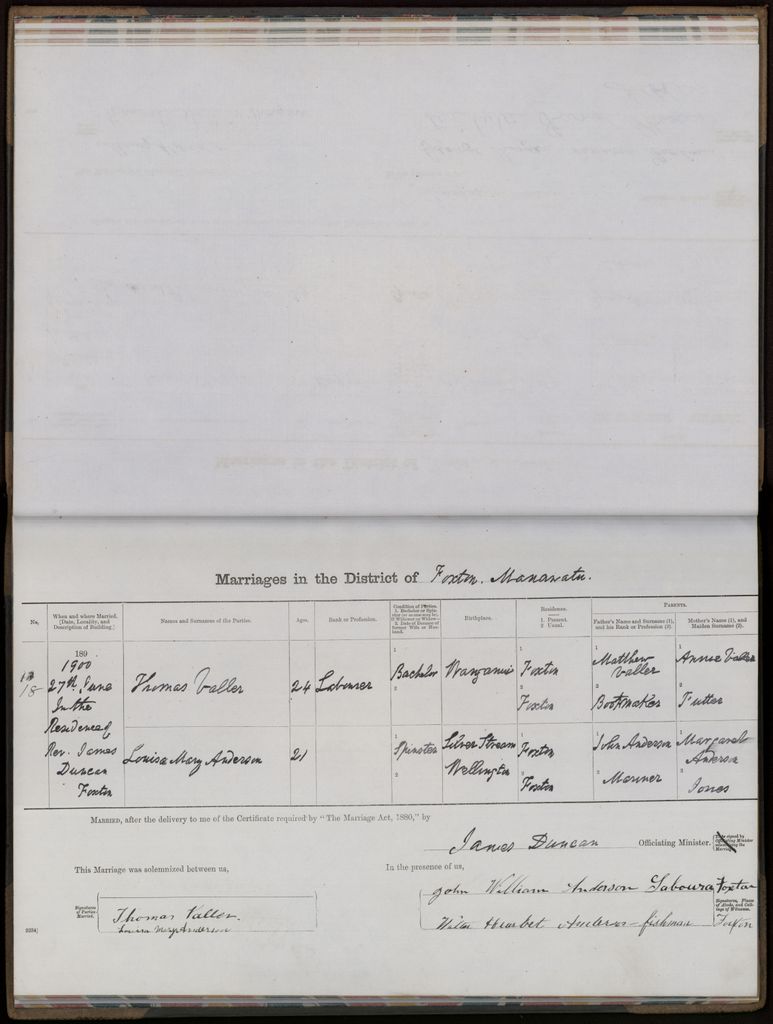 Marriages in the District of Foxton. Manawatu.
No.
When and where Married. (Date, Locality, and Description of Building.)
Names and Surnames of the Parties.
Ages.
Rank or Profession.
Condition of Parties.
Birthplace.
Residence.
1. Present.
2. Usual.
PARENTS.
Father's Name and Surname (1), and his Rank or Profession (2).
Mother's Name (1), and Maiden Surname (2).
18
189
1900
27th June
In the
Residence of
Rev. James
Duncan
Foxton
Thomas Valler
24
Labourer
1 Bachelor
2
Wanganui
1 Foxton
2 Foxton
1 Matthew Valler
2 Bootmaker
1 Annie Valler
2 Tutter
Louisa Mary Anderson
21
1 Spinster
2
Silver Stream
Wellington
1 Foxton
2 Foxton
1 John Anderson
2 Mariner
1 Margaret Anderson
2 Jones
MARRIED, after the delivery to me of the Certificate required by "The Marriage Act, 1880," by
James Duncan Officiating Minister.
This Marriage was solemnized between us,
In the presence of us,
Signatures of Parties Married.
Thomas Valler.
Louisa Mary Anderson
John William Anderson Laboura Foxton
Signatures, Place of Abode, and Callings of Witnesses.
fishman Foxton